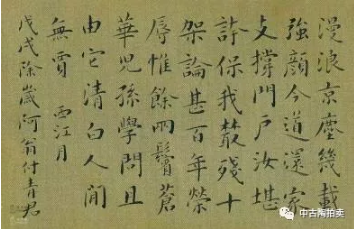 漫浪京塵幾載
強顏今道還家
支撐門戶汝堪
誇保我叢殘十
架論甚百年榮
辱惟餘兩鬢蒼
華兒孫學問且
由它清白人間
無賈 西江月
戊戌除歲阿翁付青君
中古陶拍卖